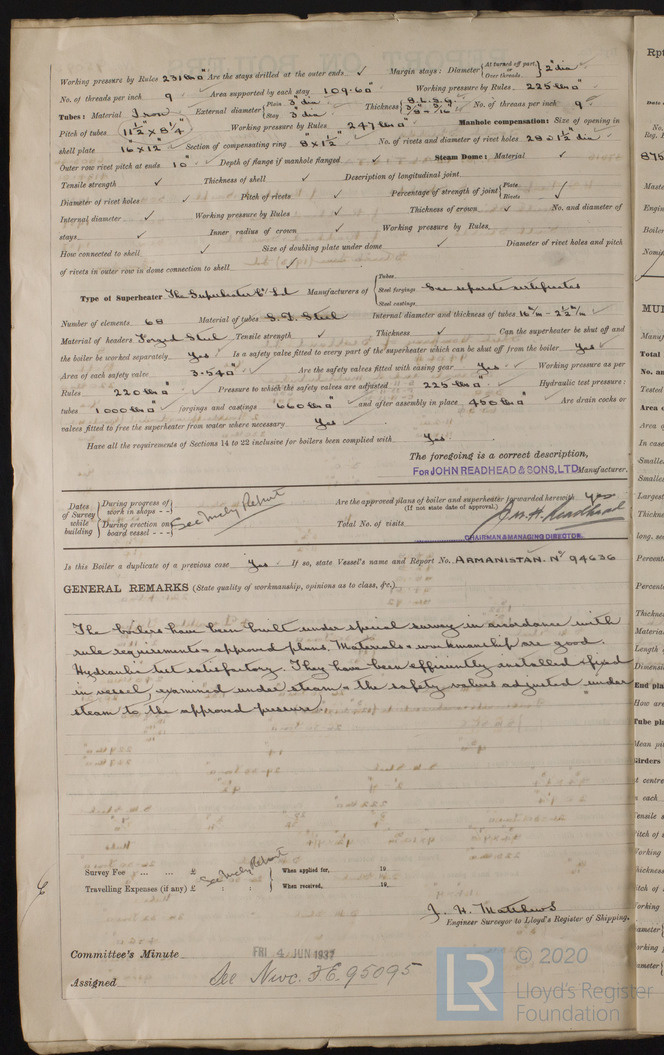 Working pressure by Rules 231 lbs □" Are the stays drilled at the outer ends ✓ Margin stays: Diameter { At turned off part, Over threads. } 2" dia
No. of threads per inch 9 Area supported by each stay 109.60" Working pressure by Rules 225 lbs □"
Tubes: Material Iron External diameter { Plain 3" dia Stay 3" dia Thickness { 8. L.S.G. No. of threads per inch 9
Pitch of tubes 11½" × 8¼" Working pressure by Rules 247 lbs □" Manhole compensation: Size of opening in
shell plate 16" × 12" Section of compensating ring 8" × 1½" No. of rivets and diameter of rivet holes 28 @ 1½" dia
Outer row rivet pitch at ends 10" Depth of flange if manhole flanged ✓ Steam Dome: Material ✓
Tensile strength ✓ Thickness of shell ✓ Description of longitudinal joint
Diameter of rivet holes ✓ Pitch of rivets ✓ Percentage of strength of joint { Plate Rivets ✓
Internal diameter ✓ Working pressure by Rules ✓ Thickness of crown ✓ No. and diameter of
stays ✓ Inner radius of crown ✓ Working pressure by Rules ✓
How connected to shell ✓ Size of doubling plate under dome ✓ Diameter of rivet holes and pitch
of rivets in outer row in dome connection to shell ✓
Type of Superheater The Superheater Co Ltd Manufacturers of { Tubes Steel forgings Steel castings See separate certificates
Number of elements 68 Material of tubes S.D. Steel Internal diameter and thickness of tubes 16 m/m - 2½ m/m
Material of headers Forged Steel Tensile strength ✓ Thickness ✓ Can the superheater be shut off and
the boiler be worked separately Yes Is a safety valve fitted to every part of the superheater which can be shut off from the boiler Yes
Area of each safety valve 3.540" Are the safety valves fitted with easing gear Yes Working pressure as per
Rules 220 lbs □" Pressure to which the safety valves are adjusted 225 lbs □" Hydraulic test pressure:
tubes 1000 lbs □" forgings and castings 660 lbs □" and after assembly in place 450 lbs □" Are drain cocks or
valves fitted to free the superheater from water where necessary Yes
Have all the requirements of Sections 14 to 22 inclusive for boilers been complied with Yes
The foregoing is a correct description,
FOR JOHN READHEAD & SONS, LTD. Manufacturer.
Dates of Survey while building { During progress of work in shops - - During erection on board vessel - - - See Mchy Report
Are the approved plans of boiler and superheater forwarded herewith Yes
(If not state date of approval.)
Total No. of visits
Jas. H. Readhead
CHAIRMAN & MANAGING DIRECTOR.
Is this Boiler a duplicate of a previous case Yes If so, state Vessel's name and Report No. ARMANISTAN. No 94636
GENERAL REMARKS (State quality of workmanship, opinions as to class, &c.)
The boilers have been built under special survey in accordance with
rule requirements & approved plans. Materials & workmanship are good.
Hydraulic test satisfactory. They have been efficiently installed & fixed
in vessel, examined under steam & the safety valves adjusted under
steam to the approved pressure.
Survey Fee ... ... £ See Mchy Report When applied for, 19
Travelling Expenses (if any) £ : : When received, 19
J. H. Matthews
Engineer Surveyor to Lloyd's Register of Shipping.
Committee's Minute FRI 4 JUN 1937
Assigned See Nwc. F.E. 95095
LR © 2020
Lloyd's Register
Foundation